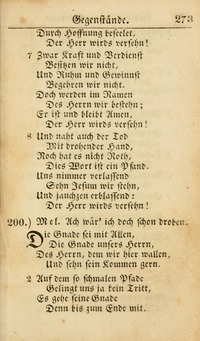 Gegenstände. 273
Durch Hoffnung beseelet,
Der Herr wirds versehn!
7 Zwar Kraft und Verdienst
Besitzen wir nicht,
Und Ruhm und Gewinnst
Begehren wir nicht.
Doch werden im Namen
Des Herrn wir bestehn;
Er ist und bleibt Amen,
Der Herr wirds versehn!
8 Und naht auch der Tod
Mit drohender Hand,
Noch hat es nicht Noth,
Dies Wort ist ein Pfand.
Uns nimmer verlassend
Sehn Jesum wir stehn,
Und jauchzen erblassend:
Der Herr wirds versehn!
200.) Mel. Ach wär' ich doch schon droben.
Die Gnade sei mit Allen,
Die Gnade unsers Herrn,
Des Herrn, dem wir hier wallen,
Und sehn sein Kommen gern.
2 Auf dem so schmalen Pfade
Gelingt uns ja kein Tritt,
Es gehe seine Gnade
Denn bis zum Ende mit.